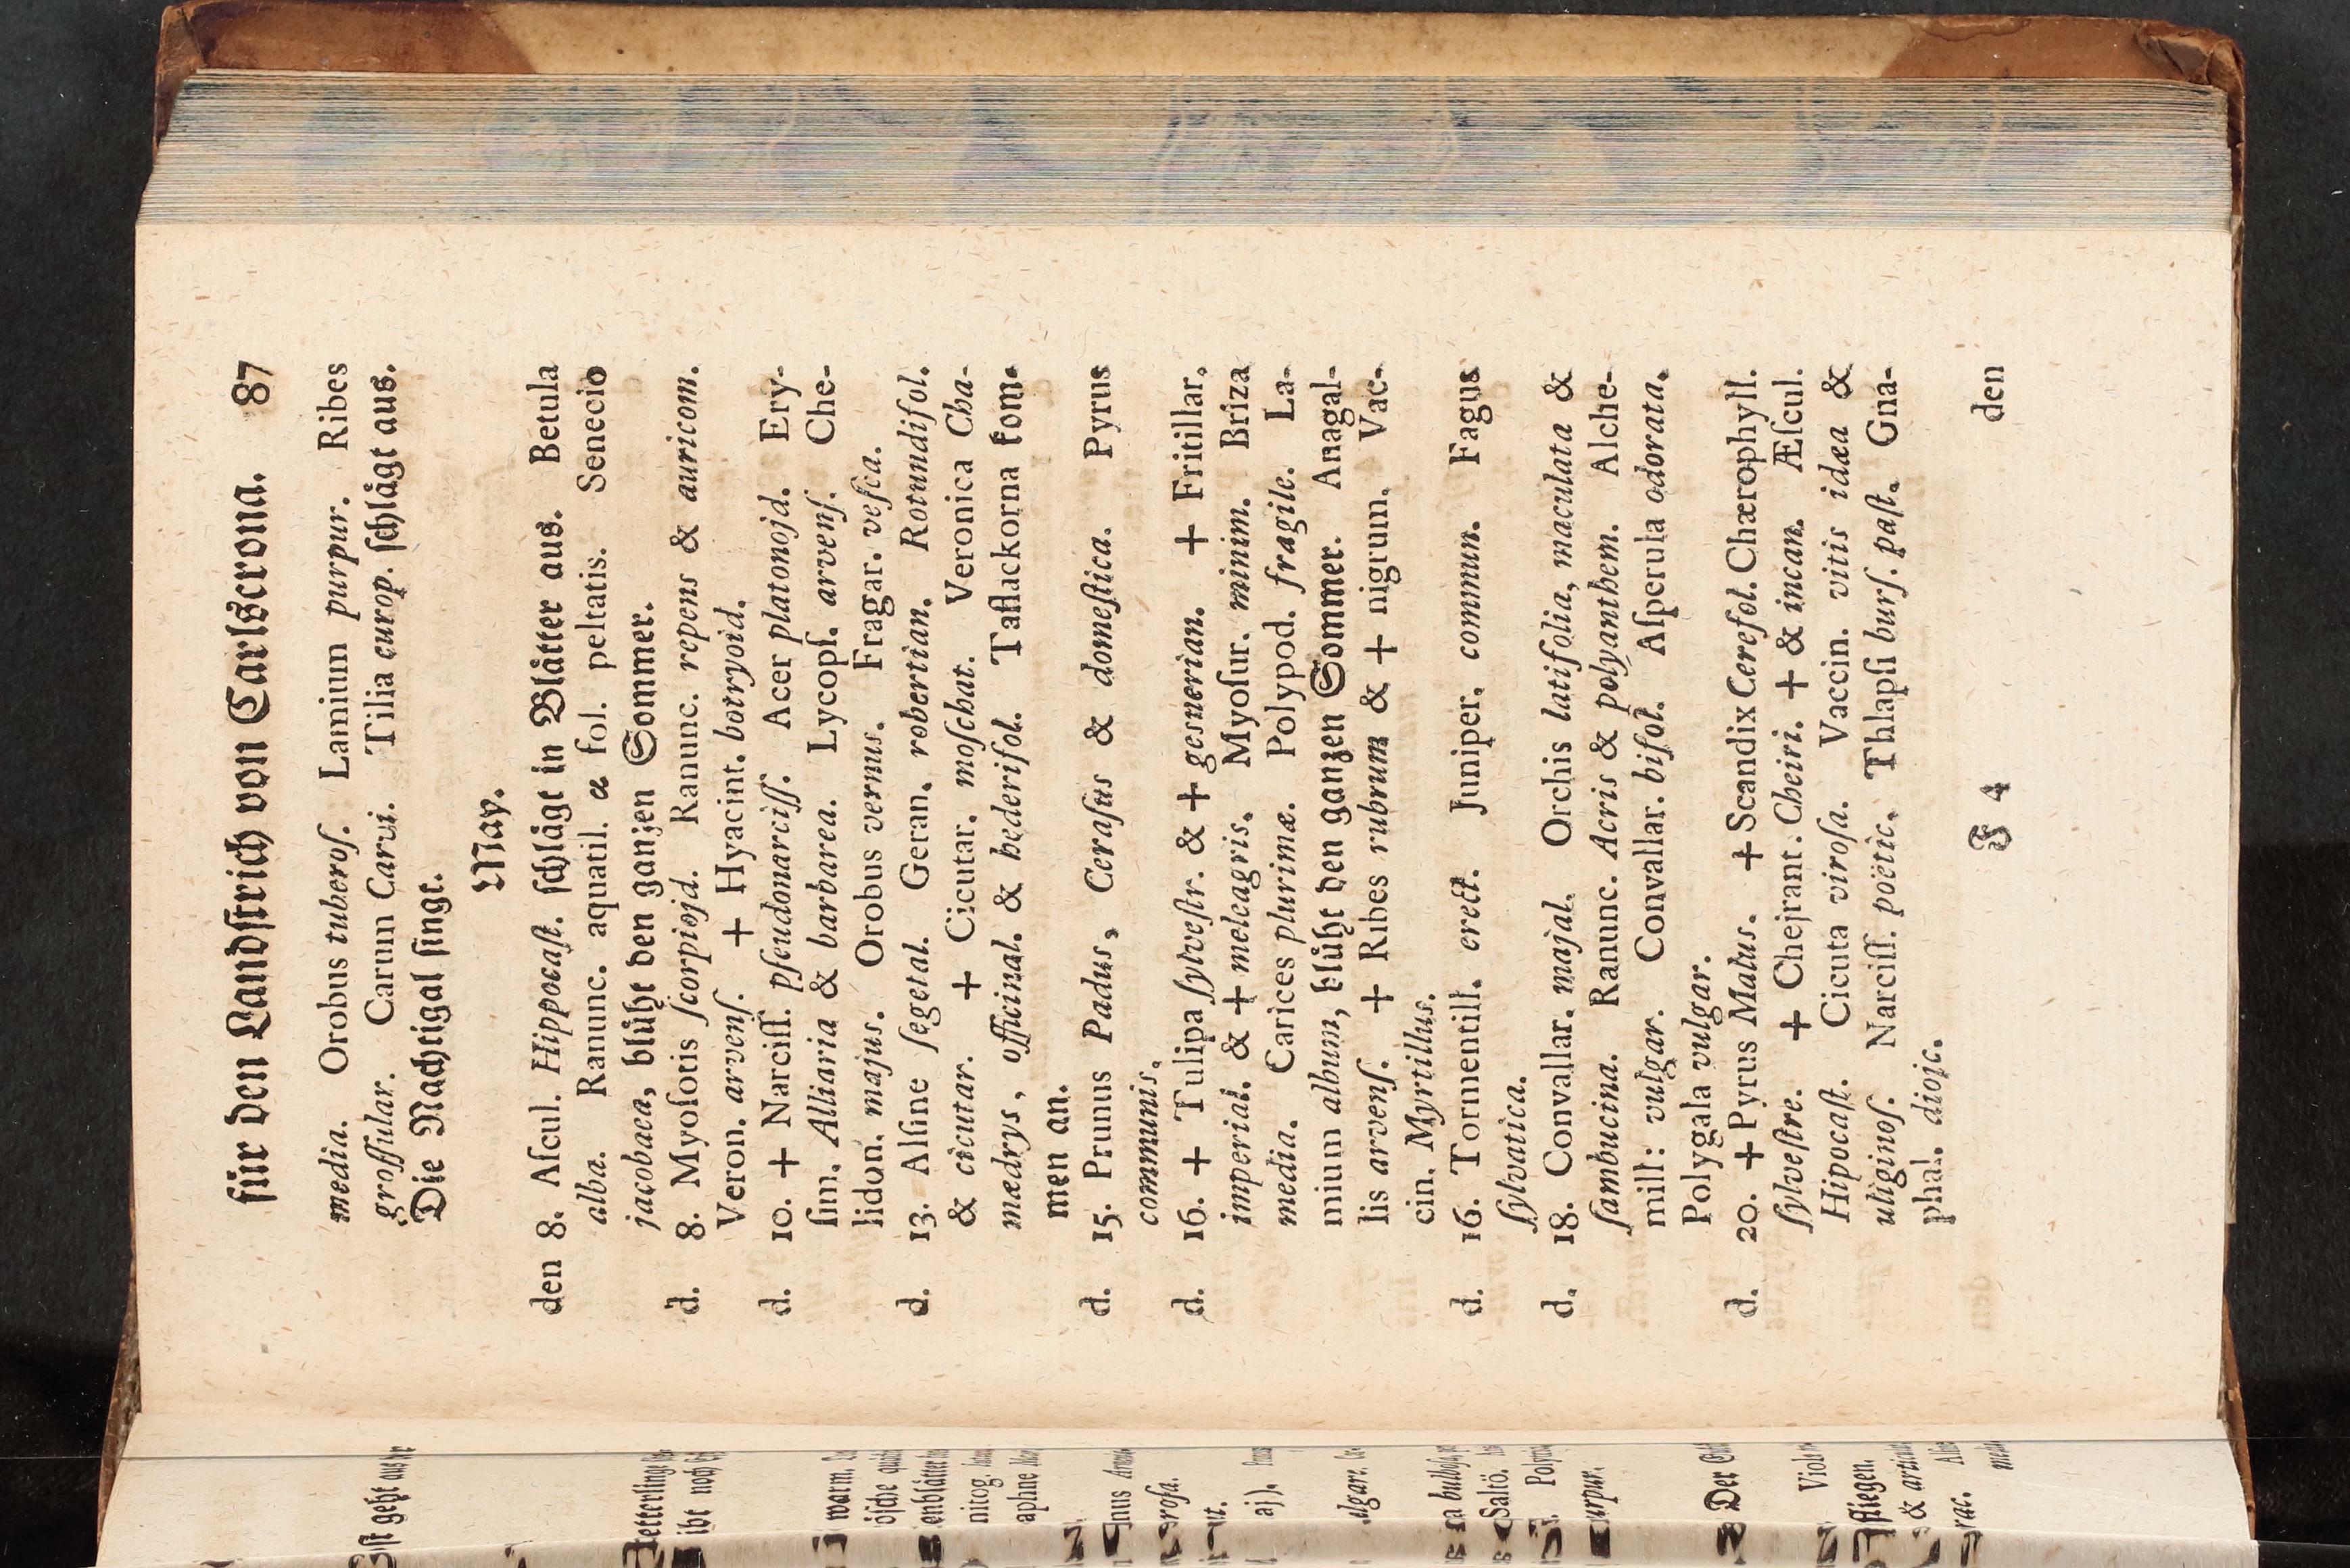 für den Landſtrich von Carlscrona. 87
media. Orobus tuberoſ. Lamium purpur. Ribes
groſſular. Carum Carvi. Tilia europ. ſchlågt aus.
Die Nachtigal ſingt.
May.
den 8. Aſcul. Hippocaſt. ſchlågt in Blåtter aus. Betula
alba. Ranunc. aquatil. α fol. peltatis. Senecio
jacobaea, blůht den ganzen Sommer.
d. 8. Myoſotis ſcorpiojd. Ranunc. repens & auricom.
Veron. arvenſ. + Hyacint. botryoid.
d. 10. + Narciſſ. pſeudonarciſſ. Acer platonojd. Ery-
ſim. Alliaria & barbarea. Lycopſ. arvenſ. Che-
lidon. majus. Orobus vernus. Fragar. veſca.
d. 13. Alſine ſegetal. Geran. robertian. Rotundifol.
& cicutar. + Cicutar. moſchat. Veronica Cha-
mædrys, officinal. & hederifol. Taflackorna kom-
men an.
d. 15. Prunus Padus, Ceraſus & domeſtica. Pyrus
communis.
d. 16. + Tulipa ſylveſtr. & + gesnerian. + Fritillar.
imperial. & + meleagris. Myoſur. minim. Briza
media. Carices plurimæ. Polypod. fragile. La-
mium album, blůht den ganzen Sommer. Anagal-
lis arvenſ. + Ribes rubrum & + nigrum. Vac-
cin. Myrtillus.
d. 16. Tormentill. erect. Juniper. commun. Fagus
ſylvatica.
d. 18. Convallar. majal. Orchis latifolia, maculata &
ſambucina. Ranunc. Acris & polyanthem. Alche-
mill: vulgar. Convallar. bifol. Aſperula odorata.
Polygala vulgar.
d. 20. + Pyrus Malus. + Scandix Cerefol. Chærophyll.
ſylveſtre. + Chejrant. Cheiri. + & incan. Æſcul.
Hipocaſt. Cicuta viroſa. Vaccin. vitis idæa &
uliginoſ. Narciſſ. poëtic. Thlapſi burſ. paſt. Gna-
phal. diojc.
F 4 den